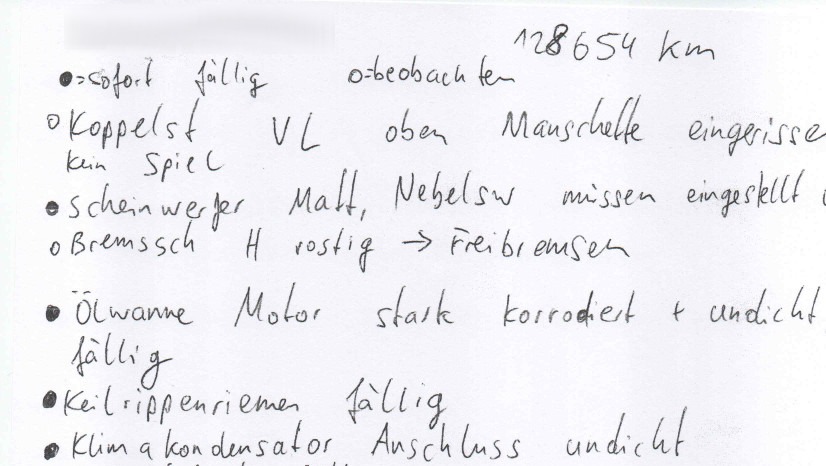 128654 km
●=sofort fällig o=beobachten
o Koppelst VL oben Manschette eingerissen
kein Spiel
● Scheinwerfer Matt, Nebelsw müssen eingestellt
o Bremssch H rostig → Freibremsen
● Ölwanne Motor stark korrodiert + undicht
fällig
● Keilrippenriemen fällig
● Klimakondensator Anschluss undicht